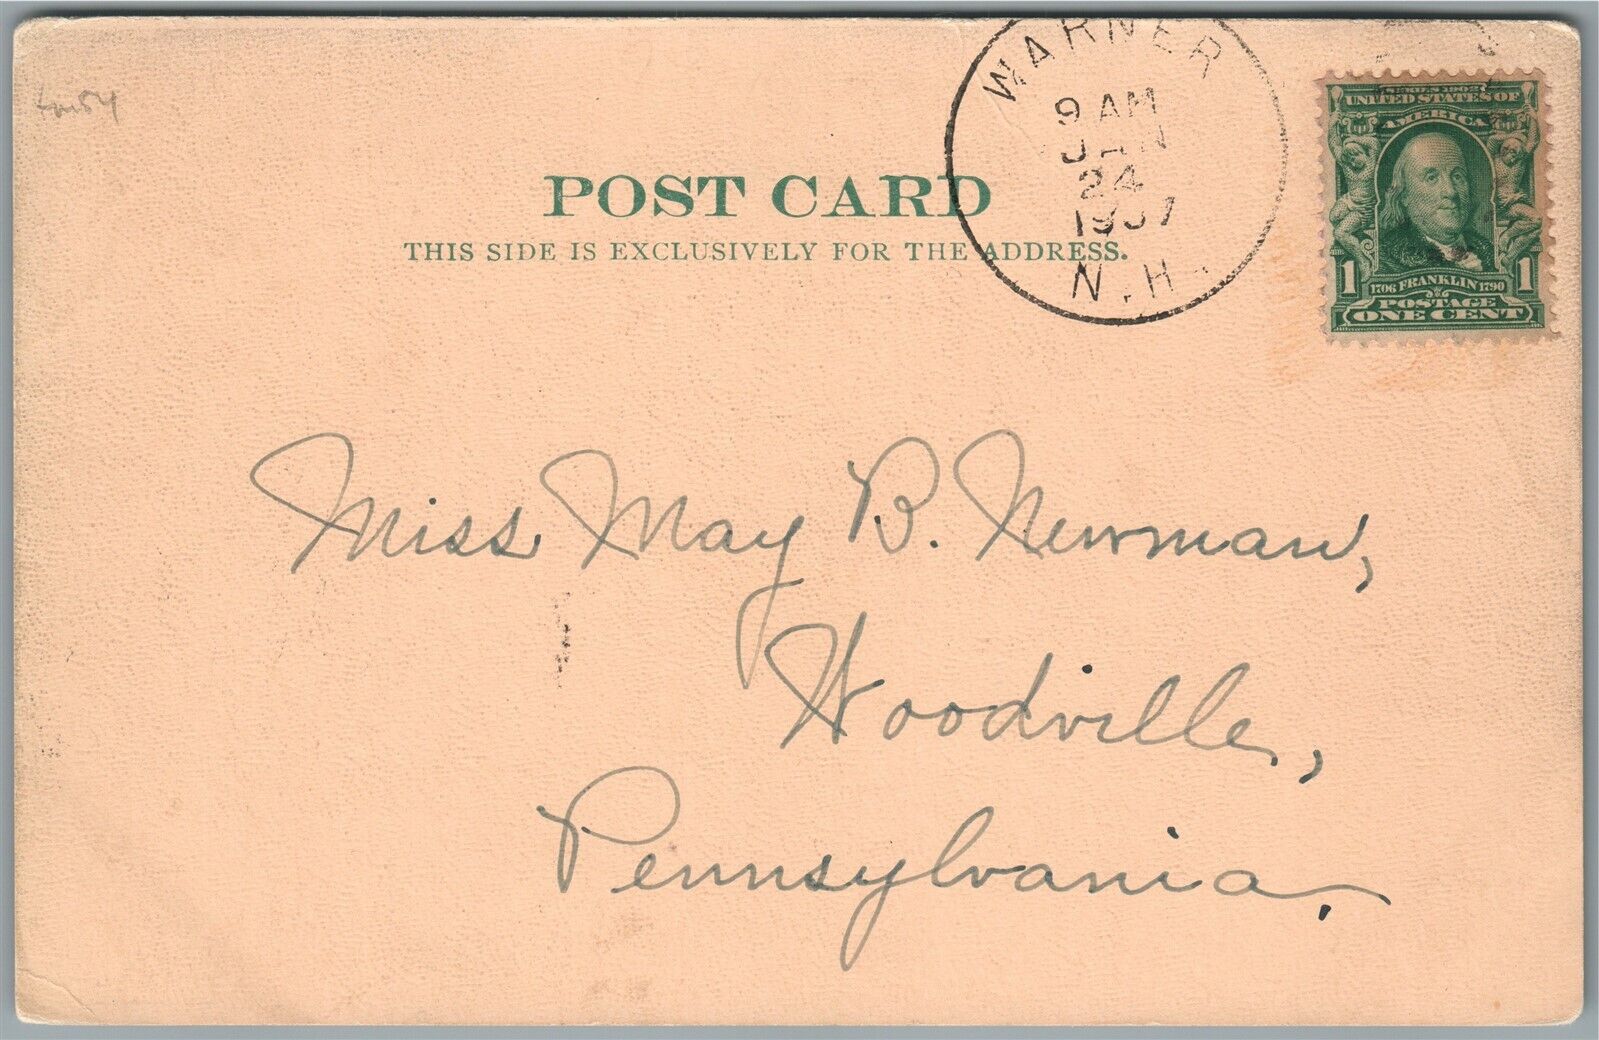 WARNER
9 AM
JAN
24
1907
N.H.
SERIES 1902
UNITED STATES OF
AMERICA
1 1706 FRANKLIN 1790 1
POSTAGE
ONE CENT
POST CARD
THIS SIDE IS EXCLUSIVELY FOR THE ADDRESS.
Miss May B. Newman,
Woodville,
Pennsylvania.